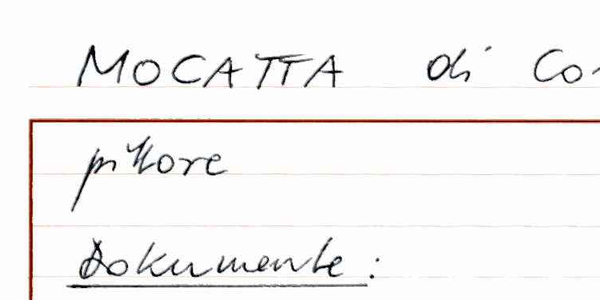 MOCATTA di Co
pittore
Dokumente: